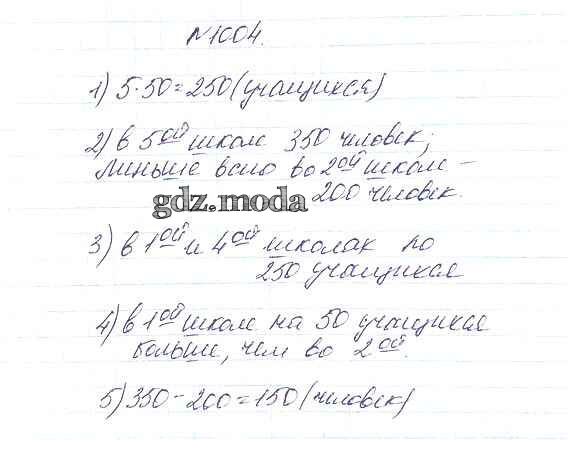 №1004.
1) 5·50=250(учащихся)
2) в 5ой школе 350 человек;
меньше всего во 2ой школе –
gdz.moda
200 человек.
3) в 1ой и 4ой школах по
250 учащихся
4) в 1ой школе на 50 учащихся
больше, чем во 2ой.
5) 350-200=150(человек)